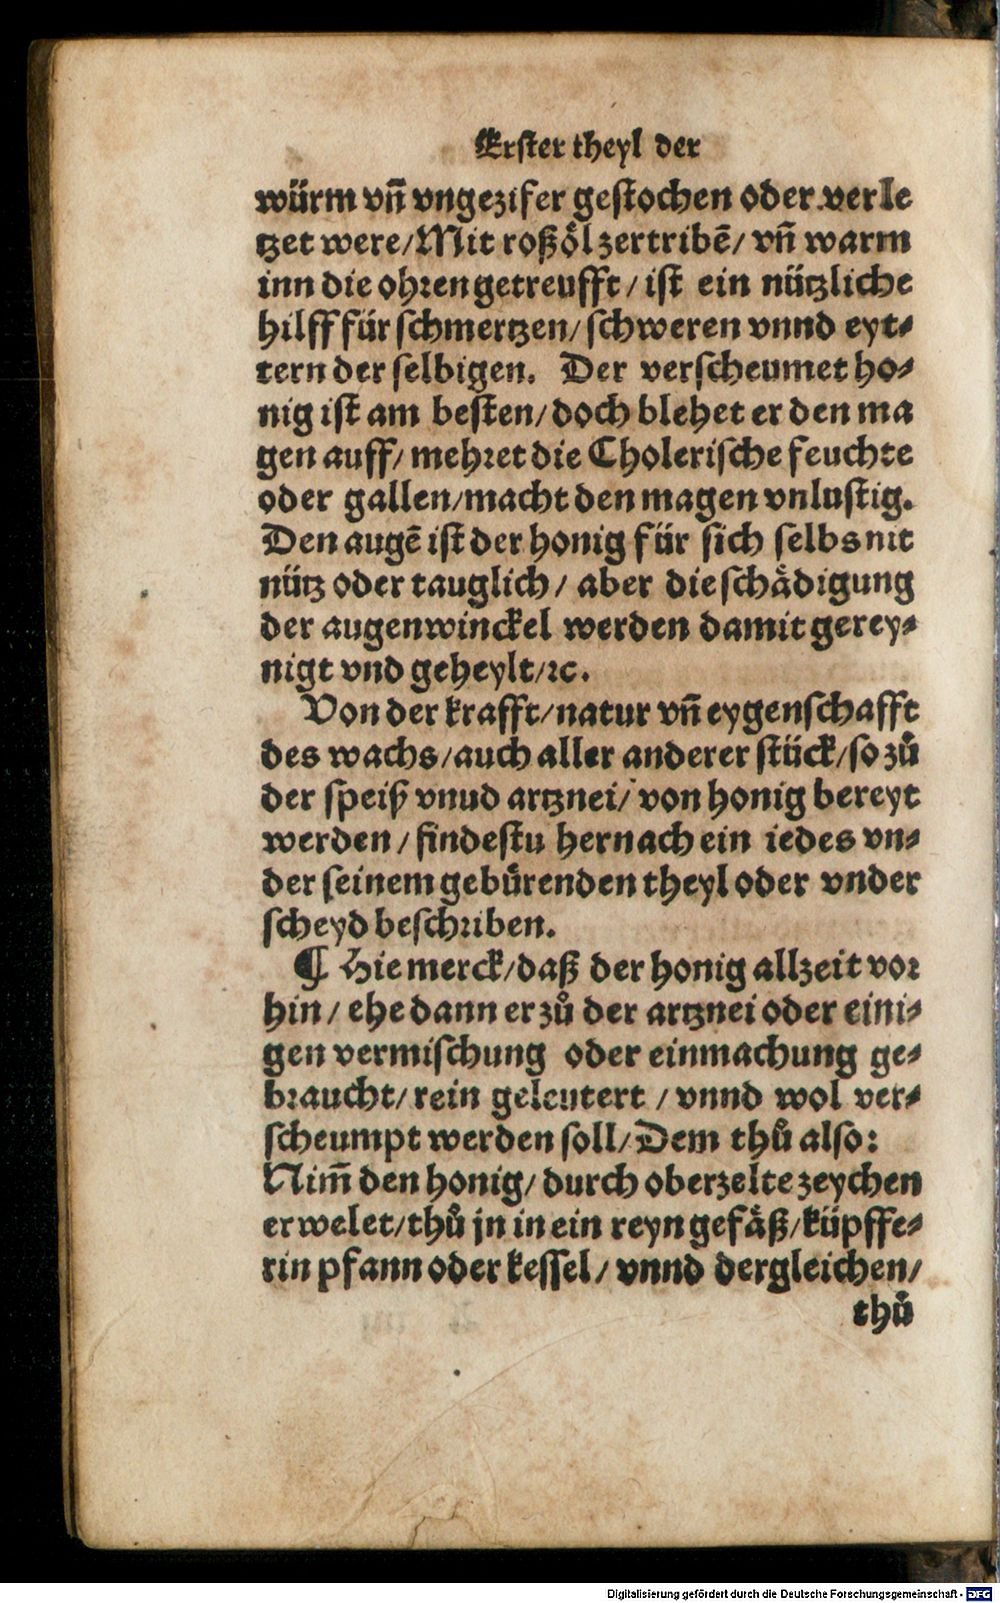 Erster theyl der
würm vn̄ vngezifer gestochen oder verle
tzet were/Mit roßöl zertribē/ vn̄ warm
inn die ohren getreufft/ ist ein nützliche
hilff für schmertzen/ schweren vnnd eyt⸗
tern der selbigen. Der verscheumet ho⸗
nig ist am besten/ doch blehet er den ma
gen auff/ mehret die Cholerische feuchte
oder gallen/macht den magen vnlustig.
Den augē ist der honig für sich selbs nit
nütz oder tauglich/ aber die schädigung
der augenwinckel werden damit gerey⸗
nigt vnd geheylt/ꝛc.
Von der krafft/natur vn̄ eygenschafft
des wachs/auch aller anderer stück/so zů
der speiß vnud artznei/ von honig bereyt
werden/ findestu hernach ein iedes vn⸗
der seinem gebürenden theyl oder vnder
scheyd beschriben.
¶ Hie merck/daß der honig allzeit vor
hin/ ehe dann er zů der artznei oder eini⸗
gen vermischung oder einmachung ge⸗
braucht/ rein geleutert / vnnd wol ver⸗
scheumpt werden soll/ Dem thů also:
Nim̄ den honig/ durch oberzelte zeychen
erwelet/thů jn in ein reyn gefäß/küpffe⸗
rin pfann oder kessel/ vnnd dergleichen/
thů
Digitalisierung gefördert durch die Deutsche Forschungsgemeinschaft - DFG